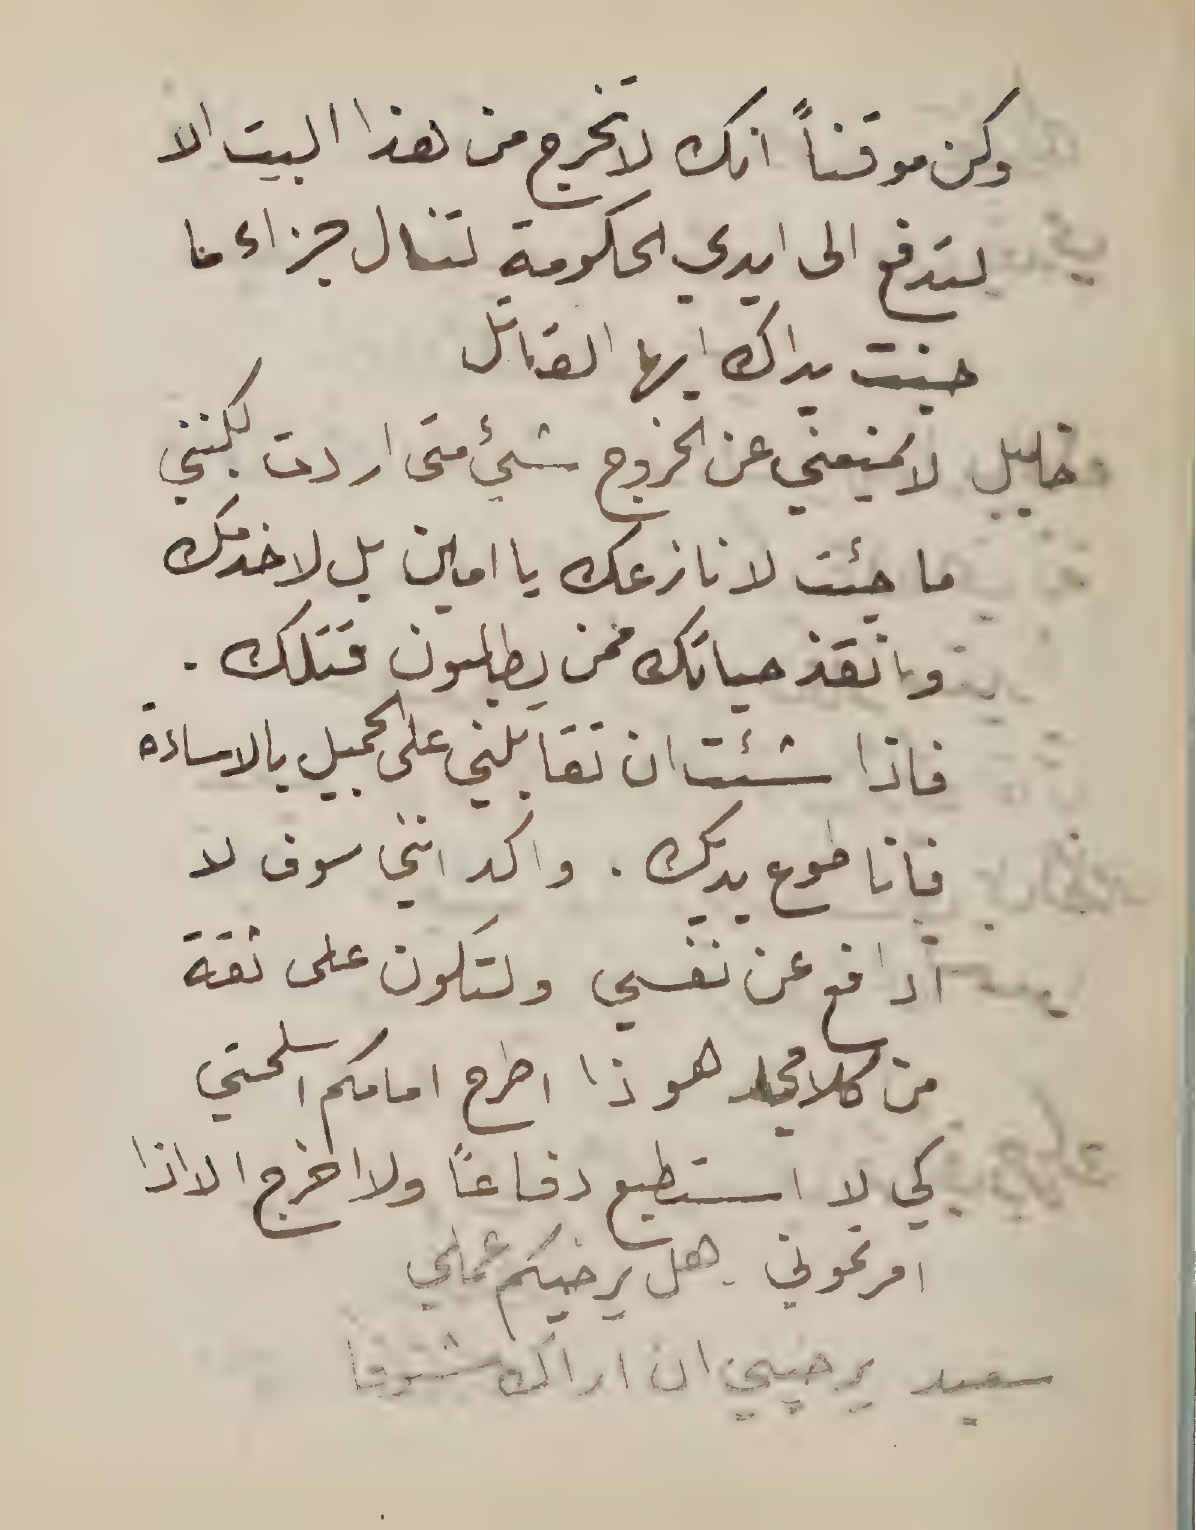 وكن موقناً انك لا تخرج من هذا البيت الا
لتدفع الى ايدي الحكومة لتنال جزاء ما
جنت يداك ايها القاتل
خليل لا يمنعني عن الخروج شيئ متى اردت لكنني
ما جئت لانازعك يا امين بل لاخدمك
وانقذ حياتك ممن يطلبون قتلك .
فاذا شئت ان تقابلني على الجميل بالاساءة
فانا طوع يديك . واكد انني سوف لا
أدافع عن نفسي ولتكون على ثقة
من كلامي هو ذا اطرح امامكم اسلحتي
كي لا استطيع دفاعاً ولا اخرج الا اذا
امرتموني . هل يرضيكم عملي
سعيد يرضيني ان اراك مشنوقا